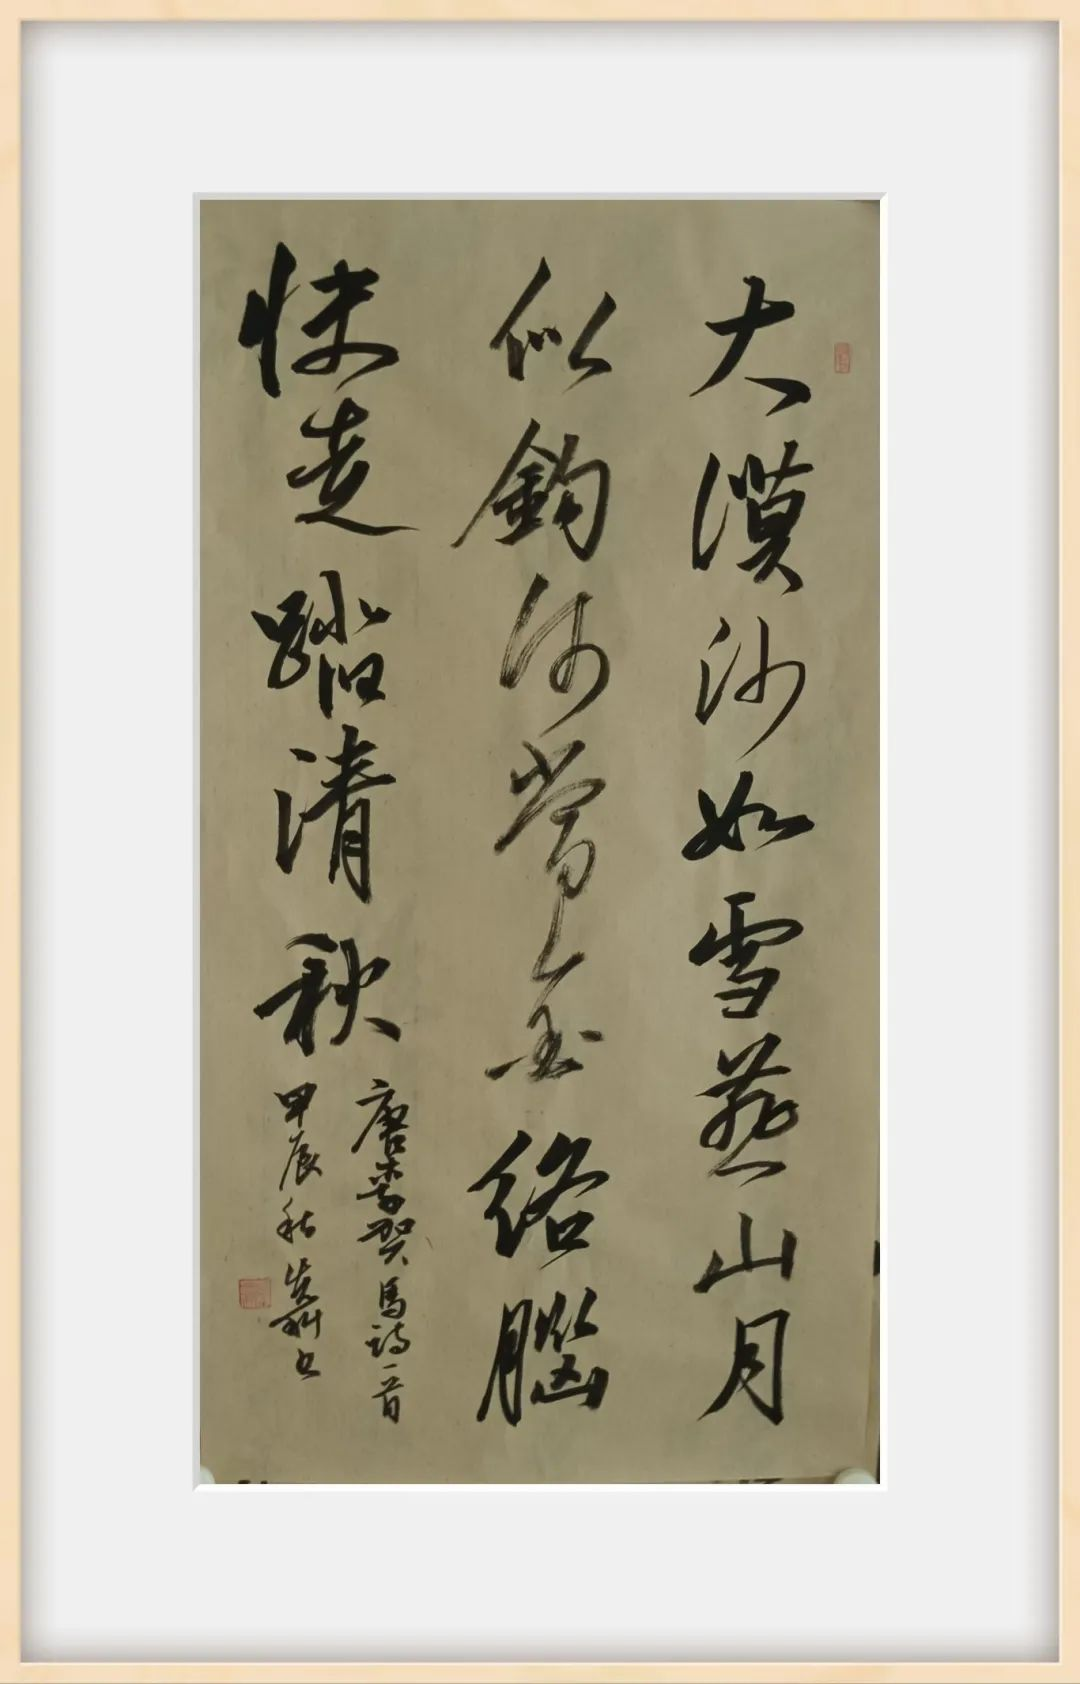 大漠沙如雪燕山月
似鉤何當金絡腦
快走踏清秋
唐李賀馬詩一首
甲辰秋